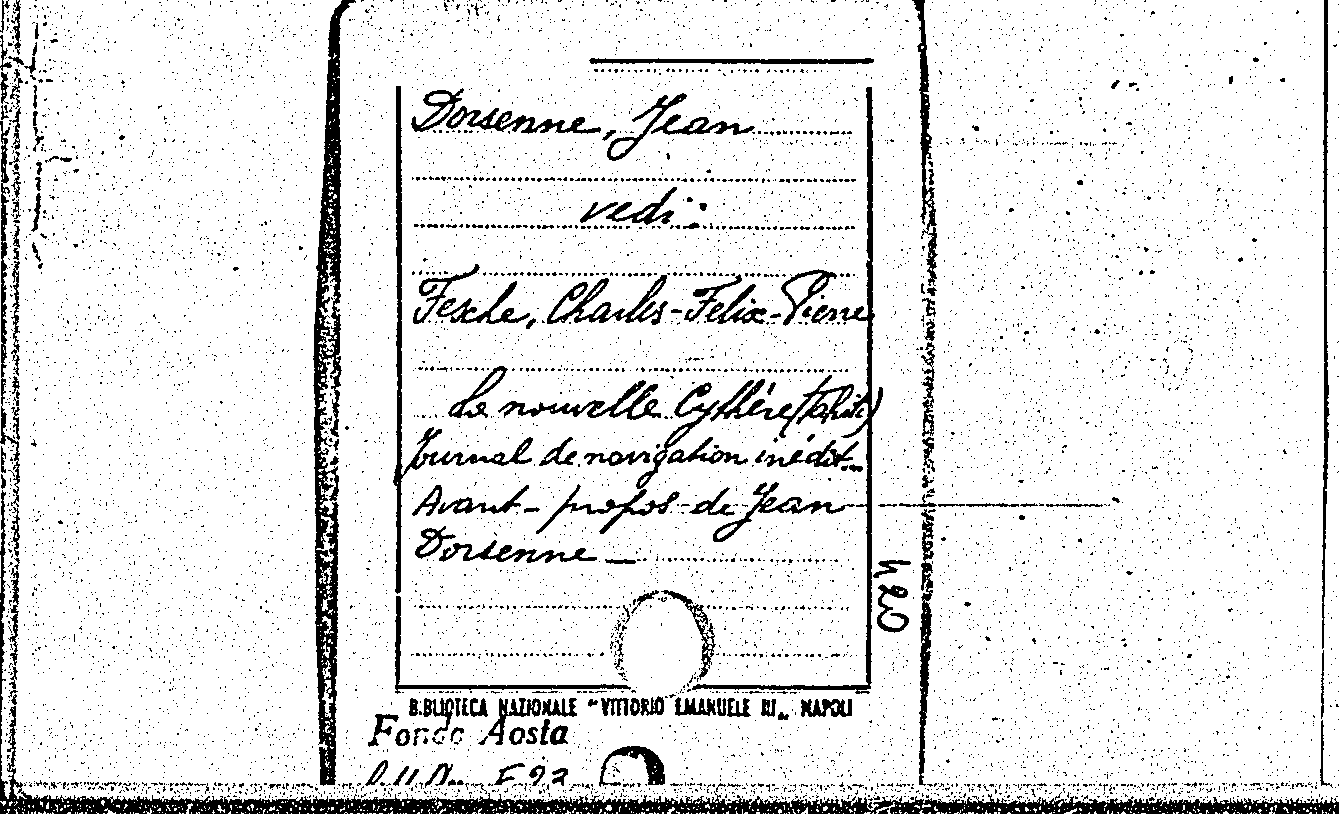 Dorsenne, Jean
vedi:
Fesche, Charles-Felix-Pierre
La nouvelle Cythère (Tahiti)
Journal de navigation inédit...
Avant-propos de Jean
Dorsenne
420
BIBLIOTECA NAZIONALE "VITTORIO EMANUELE III" NAPOLI
Fondo Aosta